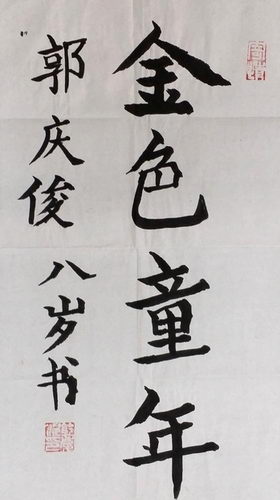 金色童年
郭庆俊 八岁书